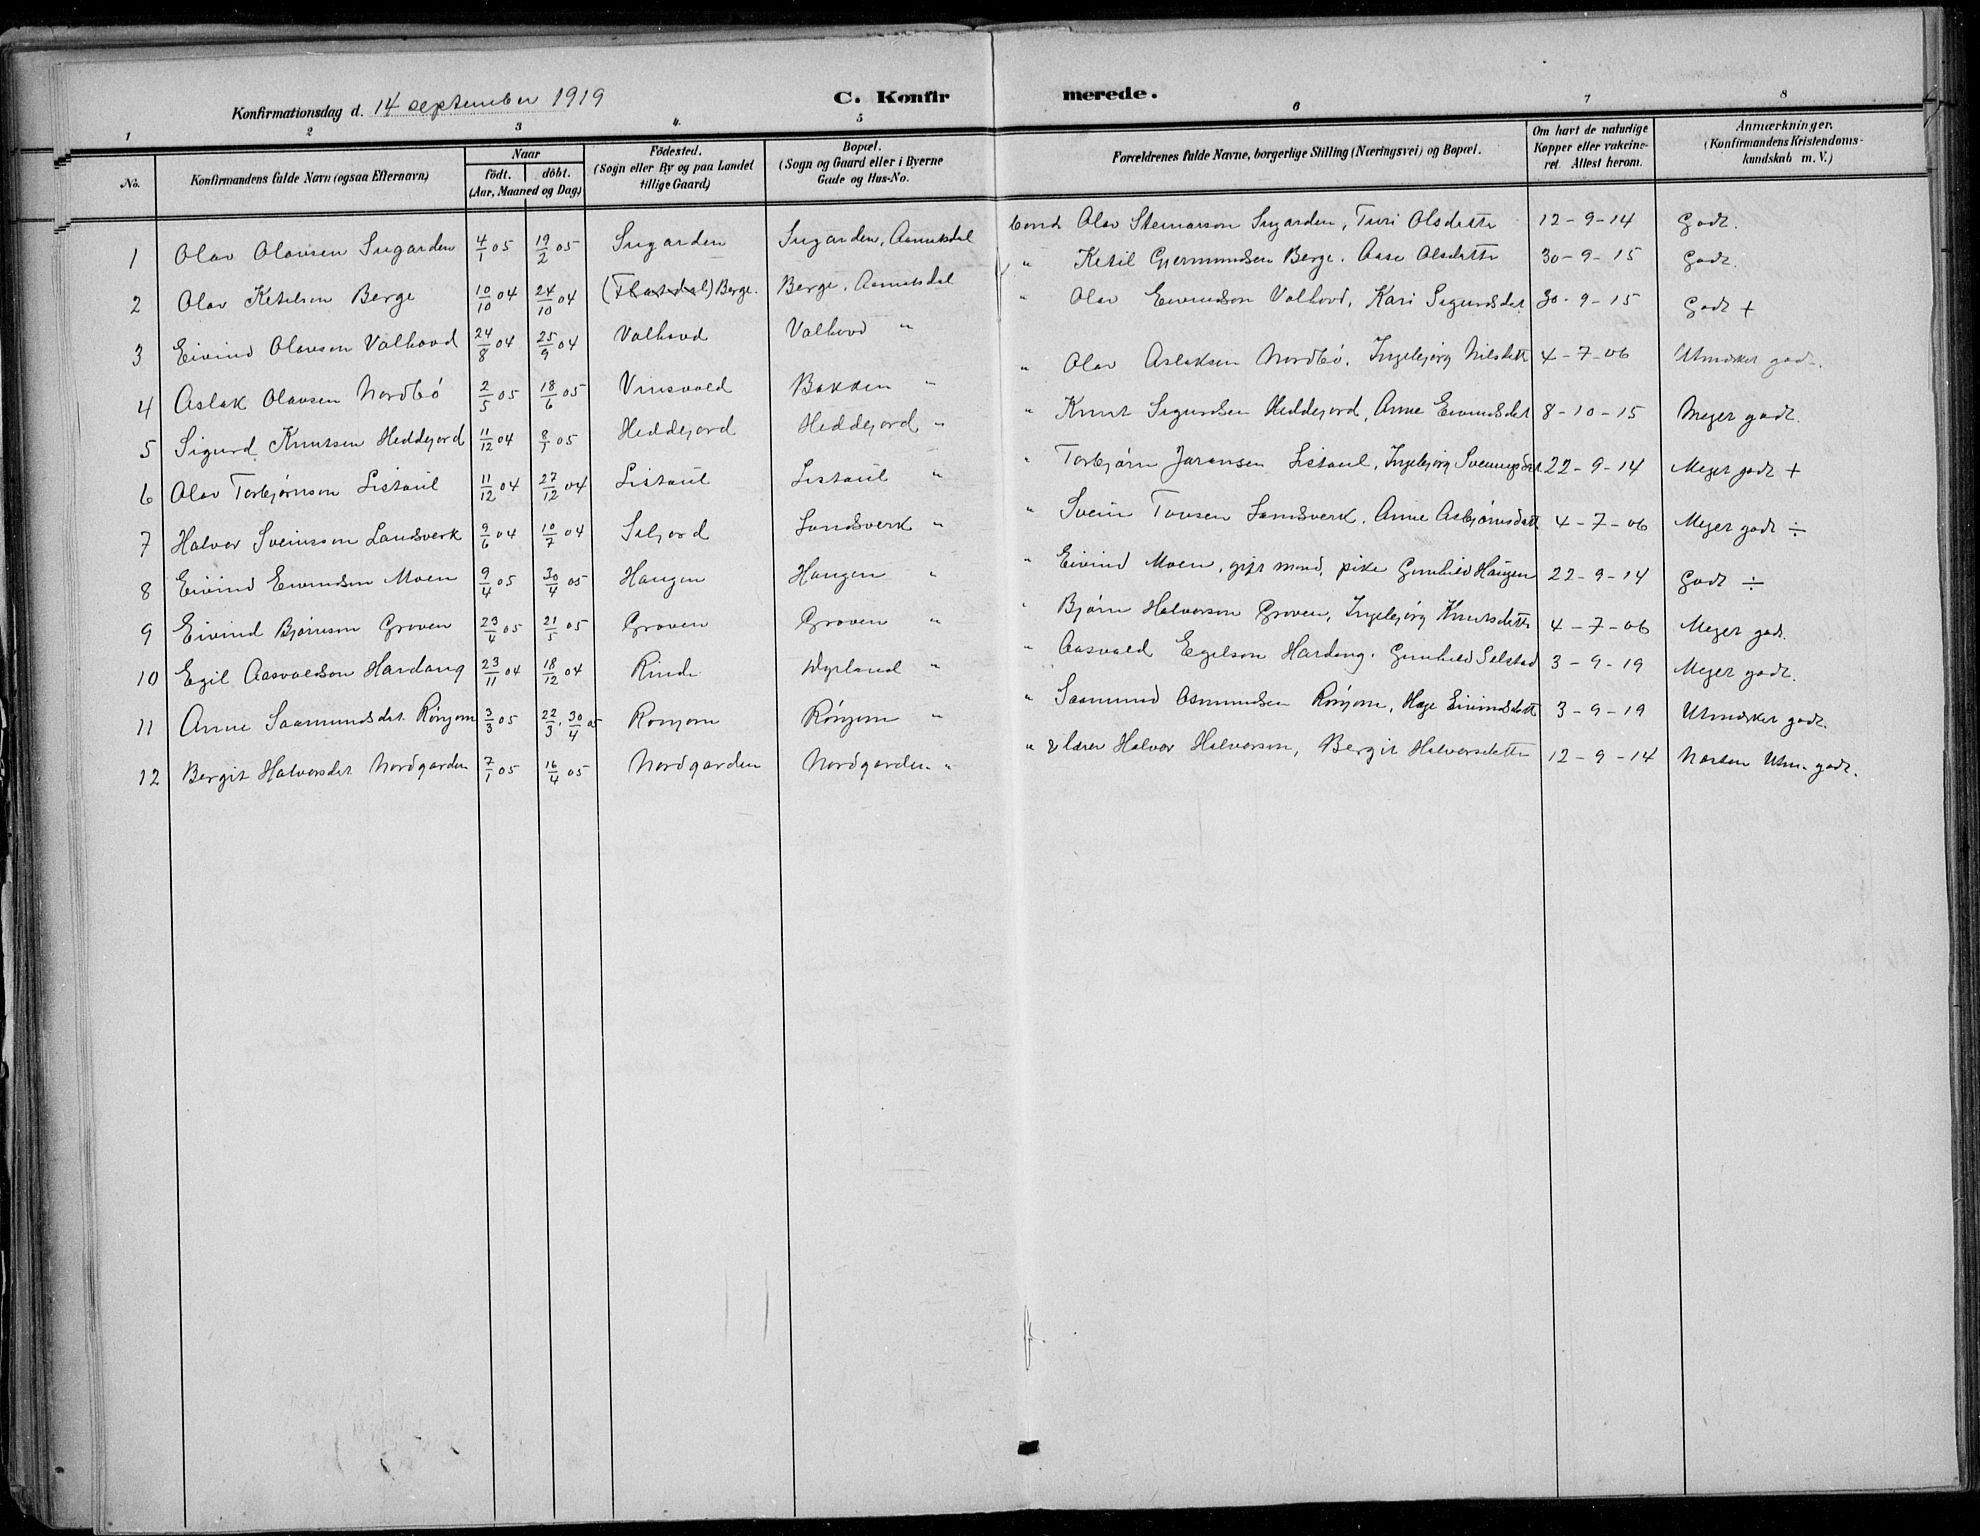 Konfirmationsdag d. 14 september 1919 C. Konfir merede.
1 2 3 4. 5 6 7 8
No. Konfirmandens fulde Navn (ogsaa Efternavn) Naar födt. döbt. (Aar, Maaned og Dag) Födested. (Sogn eller By og paa Landet tillige Gaard) Bopæl. (Sogn og Gaard eller i Byerne Gade og Hus-No. Forældrenes fulde Navne, borgerlige Stilling (Næringsvei) og Bopæl. Om havt de naturlige Kopper eller vakcineret. Attest herom. Anmærkninger. (Konfirmandens Kristendomskundskab m. V.)
1 Olav Olavsen Sugarden 4/1 05 19/2 05 Sugarden Sugarden, Aamotsdal bonde Olav Steinarson Sugarden, Turi Olsdatte 12-9-14 Godt.
2 Olav Ketilson Berge 10/10 04 24/10 04 (Flatdal) Berge. Berge, Aamotsdal " Ketil Gjermundsen Berge. Aase Olsdatte 30-9-15 Godt.
3 Eivind Olavson Valhovd 24/8 04 25/9 04 Valhovd Valhovd " " Olav Eivindson Valhovd, Kari Sigurdsdat 30-9-15 Godt +
4 Aslak Olavsen Nordbö 2/5 05 18/6 05 Vinsvald Bakken " " Olav Aslaksen Nordbö. Ingebjørg Nilsdatt 4-7-06 Utmerket godt.
5 Sigurd Knutsen Heddejord 11/12 04 8/1 05 Heddejord Heddejord " " Knut Sigurdsen Heddejord, Anne Eivindsdat 8-10-15 Meget godt.
6 Olav Torbjørnson Listaul 11/12 04 27/12 04 Listaul Listaul " " Torbjørn Jaransen Listaul, Ingebjørg Sveinungsdat 22-9-14 Meget godt +
7 Halvor Sveinsson Landsverk 9/6 04 10/7 04 Seljord Landsverk " " Svein Tovsen Landsverk. Anne Asbjørnsdatt 4-7-06 Meget godt ÷
8 Eivind Eivindsen Moen 9/4 05 30/4 05 Haugen Haugen " " Eivind Moen, gift mand, pike Gunhild Haugen 22-9-14 Godt ÷
9 Eivind Bjørnson Groven 23/4 05 21/5 05 Groven Groven " " Bjørn Halvorson Groven, Ingebjørg Knutsdatte 4-7-06 Meget godt.
10 Egil Aasvaldson Hardang 23/11 04 18/12 04 Rinde Dyrland " " Aasvald Egilson Hardang. Gunhild Selstad 3-9-19 Meget godt.
11 Anne Saamundsdat. Rönjom 3/3 05 22/3, 30/4 05 Ronjom Rönjom " " Saamund Asmundsen Rönjom, Hæge Eivindsdatt 3-9-19 Utmerket godt.
12 Bergit Halvorsdat Nordgarden 7/1 05 16/4 05 Nordgarden Nordgarden " " & lærer Halvor Halvorson, Bergit Halvorsdatte 12-9-14 Næsten Utm. godt.